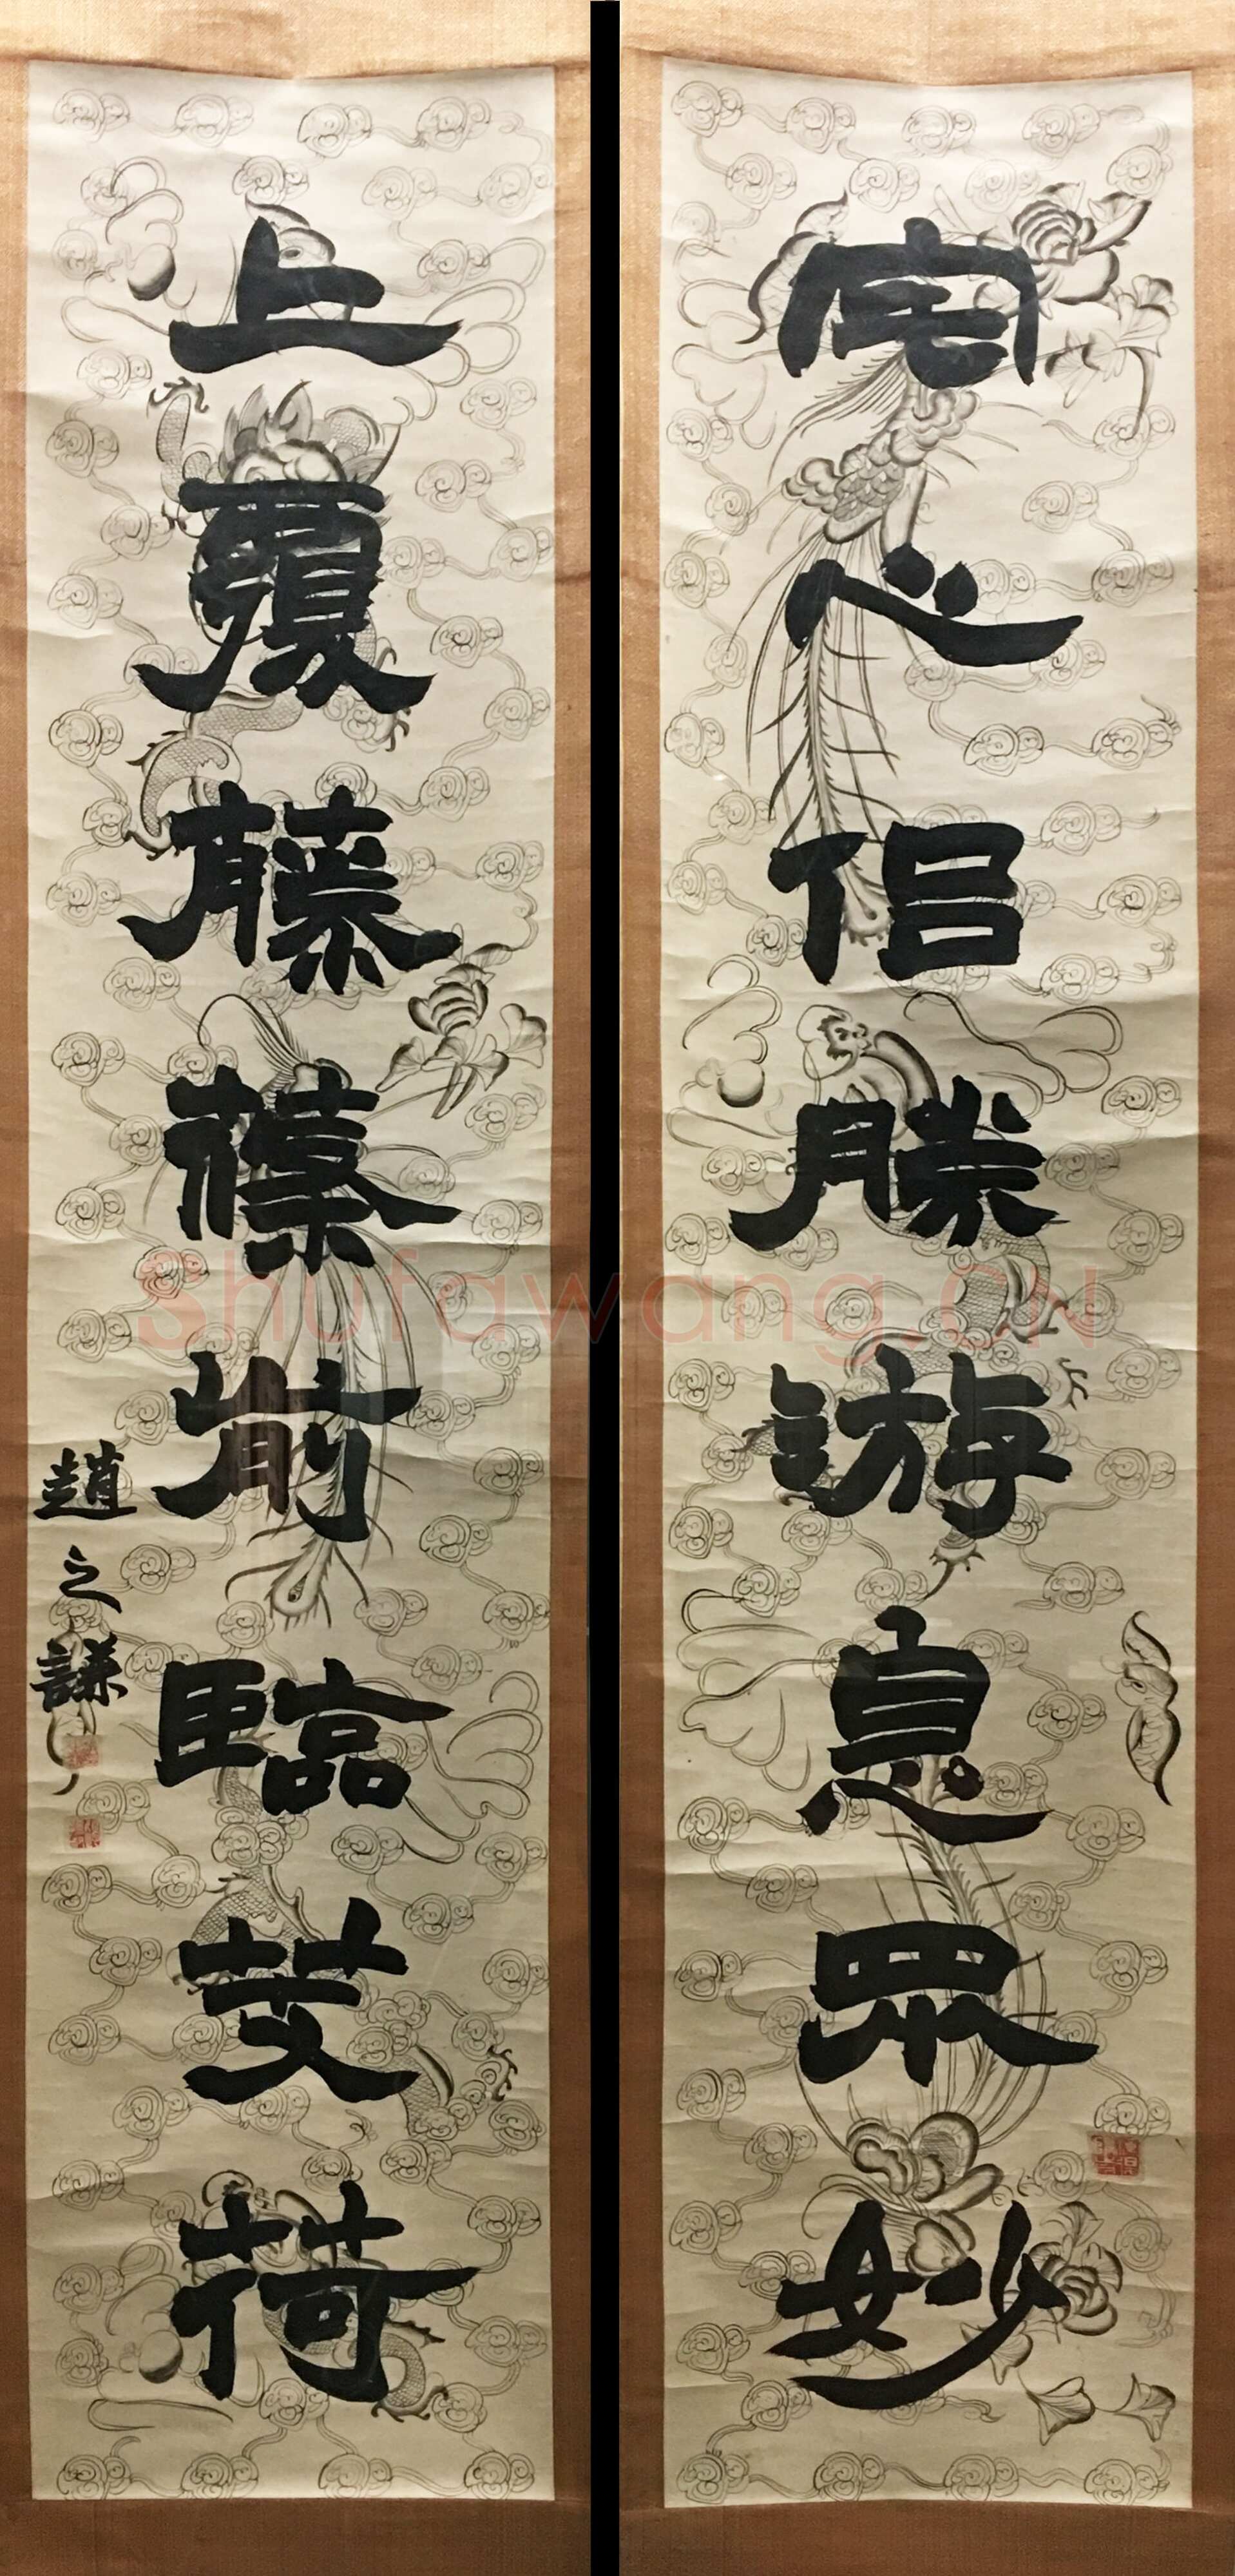 宅心侣勝游息眾妙
上覆藤篠前臨芰荷
趙之謙
Shufawang.CN